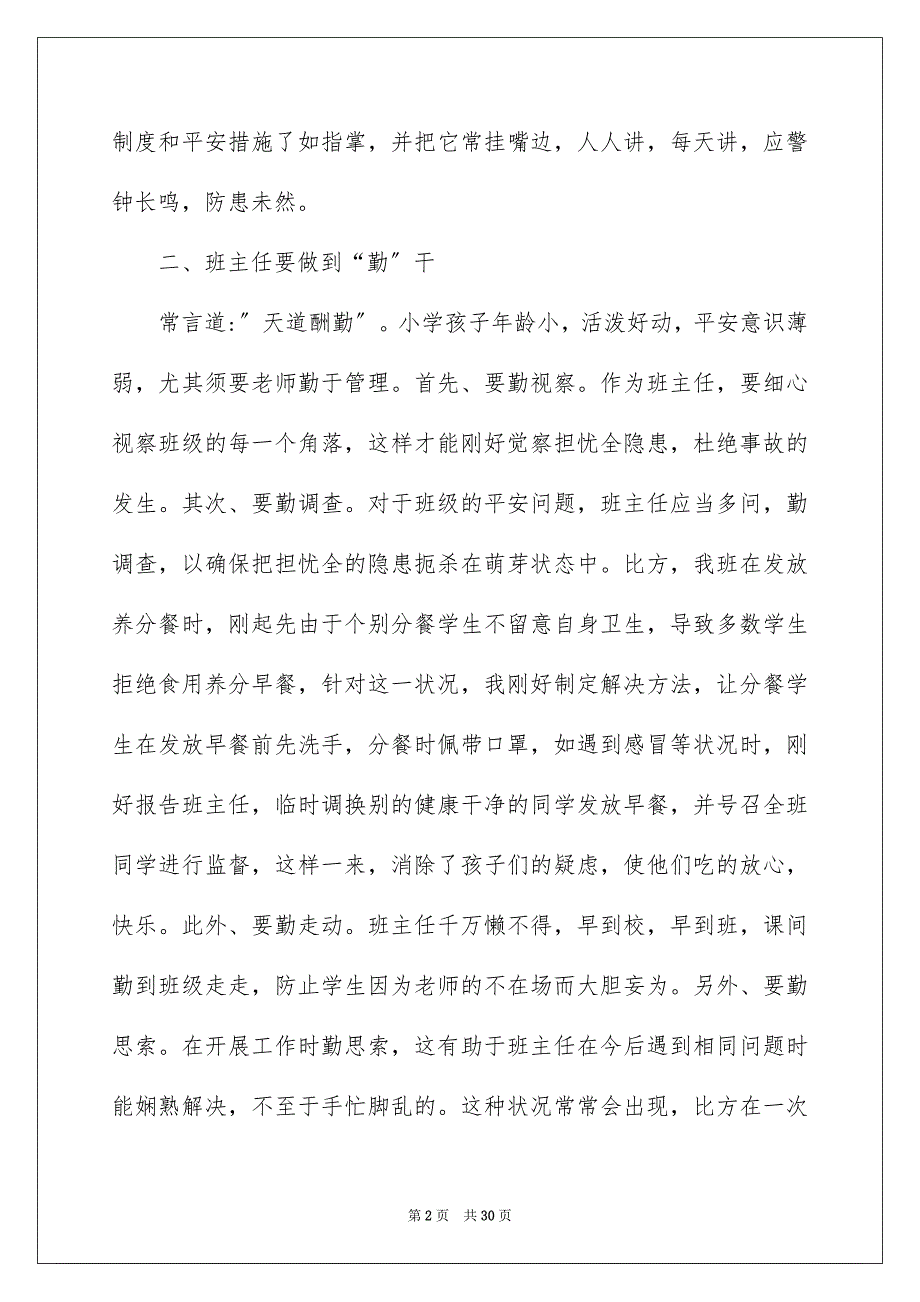 制度和平安措施了如指掌，并把它常挂嘴边，人人讲，每天讲，应警
钟长鸣，防患未然。
二、班主任要做到“勤〞干
常言道:〞天道酬勤〞。小学孩子年龄小，活泼好动，平安意识薄
弱，尤其须要老师勤于管理。首先、要勤视察。作为班主任，要细心
视察班级的每一个角落，这样才能刚好觉察担忧全隐患，杜绝事故的
发生。其次、要勤调查。对于班级的平安问题，班主任应当多问，勤
调查，以确保把担忧全的隐患扼杀在萌芽状态中。比方，我班在发放
养分餐时，刚起先由于个别分餐学生不留意自身卫生，导致多数学生
拒绝食用养分早餐，针对这一状况，我刚好制定解决方法，让分餐学
生在发放早餐前先洗手，分餐时佩带口罩，如遇到感冒等状况时，刚
好报告班主任，临时调换别的健康干净的同学发放早餐，并号召全班
同学进行监督，这样一来，消除了孩子们的疑虑，使他们吃的放心，
快乐。此外、要勤走动。班主任千万懒不得，早到校，早到班，课间
勤到班级走走，防止学生因为老师的不在场而大胆妄为。另外、要勤
思索。在开展工作时勤思索，这有助于班主任在今后遇到相同问题时
能娴熟解决，不至于手忙脚乱的。这种状况常常会出现，比方在一次
第 2 页 共 30 页